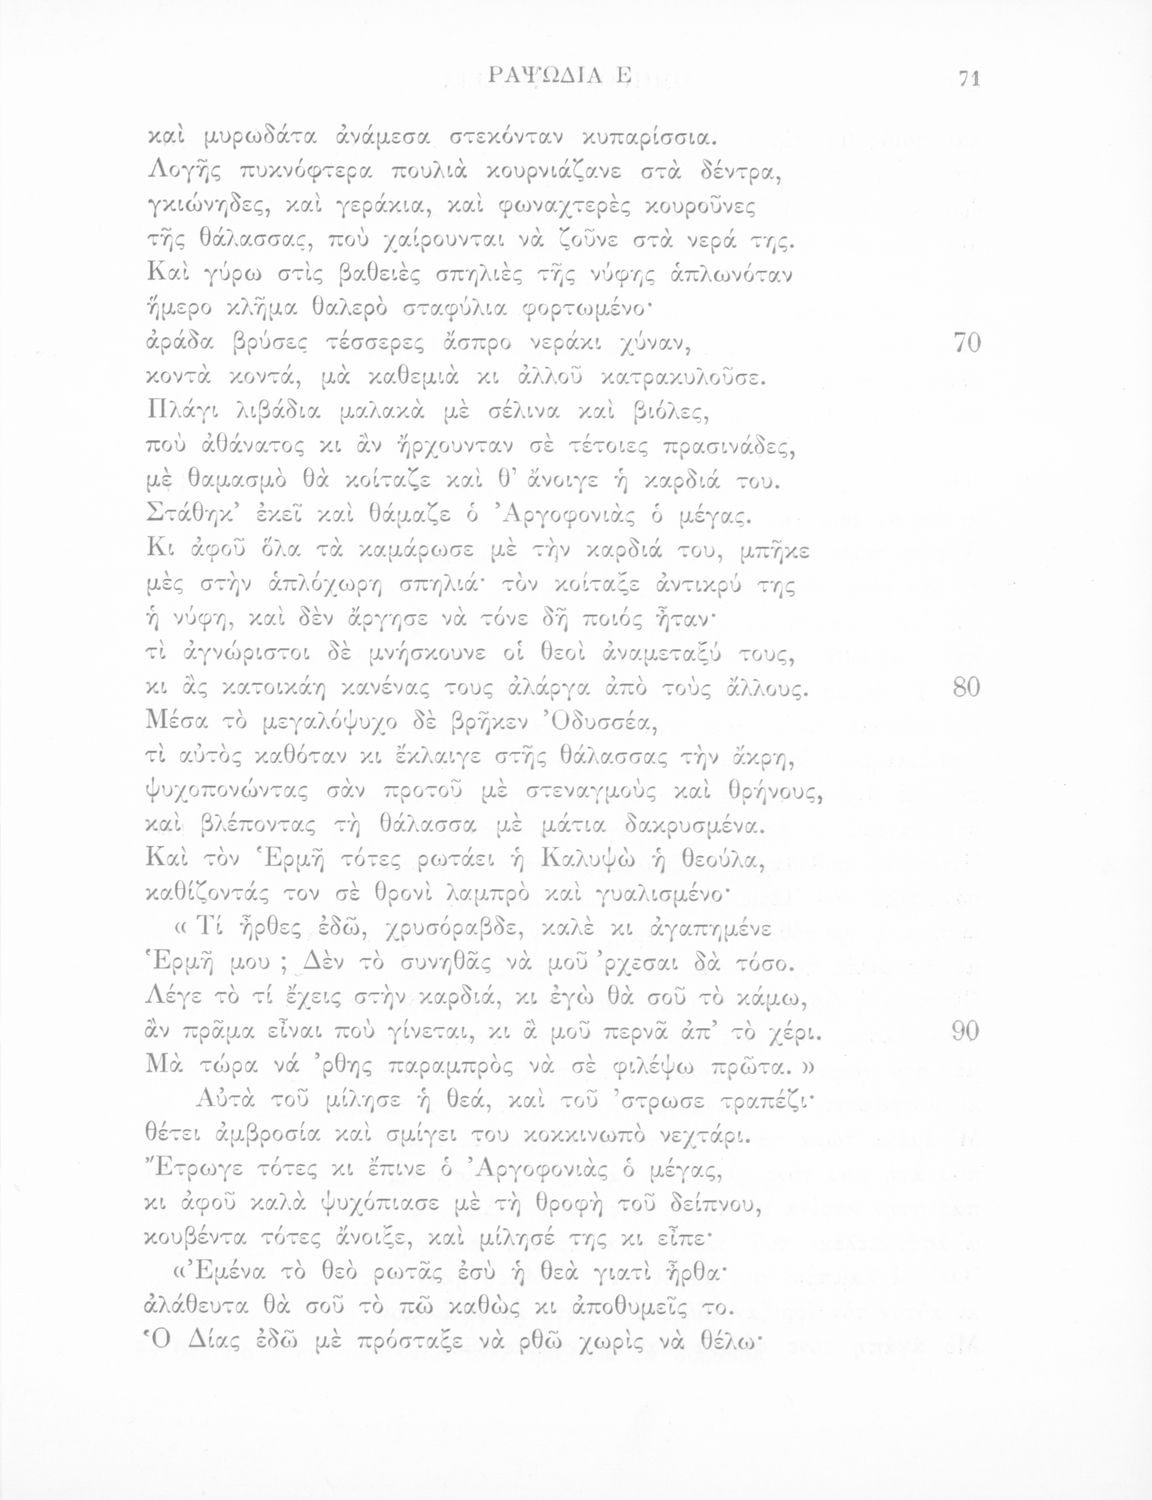 ΡΑΨΩΔΙΑ Ε 71
καὶ μυρωδάτα ἀνάμεσα στεκόνταν κυπαρίσσια.
Λογῆς πυκνόφτερα πουλιὰ κουρνιάζανε στὰ δέντρα,
γκιώνηδες, καὶ γεράκια, καὶ φωναχτερὲς κουροῦνες
τῆς θάλασσας, ποὺ χαίρουνται νὰ ζοῦνε στὰ νερά της.
Καὶ γύρω στὶς βαθειὲς σπηλιὲς τῆς νύφης ἁπλωνόταν
ἥμερο κλῆμα θαλερὸ σταφύλια φορτωμένο·
ἀράδα βρύσες τέσσερες ἄσπρο νεράκι χύναν, 70
κοντὰ κοντά, μὰ καθεμιὰ κι ἀλλοῦ κατρακυλοῦσε.
Πλάγι λιβάδια μαλακὰ μὲ σέλινα καὶ βιόλες,
ποὺ ἀθάνατος κι ἂν ἤρχουνταν σὲ τέτοιες πρασινάδες,
μὲ θαμασμὸ θὰ κοίταζε καὶ θ’ ἄνοιγε ἡ καρδιά του.
Στάθηκ’ ἐκεῖ καὶ θάμαζε ὁ Ἀργοφονιὰς ὁ μέγας.
Κι ἀφοῦ ὅλα τὰ καμάρωσε μὲ τὴν καρδιά του, μπῆκε
μὲς στὴν ἁπλόχωρη σπηλιά· τὸν κοίταξε ἀντικρύ της
ἡ νύφη, καὶ δὲν ἄργησε νὰ τόνε δῇ ποιός ἦταν·
τὶ ἀγνώριστοι δὲ μνήσκουνε οἱ θεοὶ ἀναμεταξύ τους,
κι ἂς κατοικάῃ κανένας τους ἀλάργα ἀπὸ τοὺς ἄλλους. 80
Μέσα τὸ μεγαλόψυχο δὲ βρῆκεν Ὀδυσσέα,
τὶ αὐτὸς καθόταν κι ἔκλαιγε στῆς θάλασσας τὴν ἄκρη,
ψυχοπονώντας σὰν προτοῦ μὲ στεναγμοὺς καὶ θρήνους,
καὶ βλέποντας τὴ θάλασσα μὲ μάτια δακρυσμένα.
Καὶ τὸν Ἑρμῆ τότες ρωτάει ἡ Καλυψὼ ἡ θεούλα,
καθίζοντάς τον σὲ θρονὶ λαμπρὸ καὶ γυαλισμένο·
« Τί ἦρθες ἐδῶ, χρυσόραβδε, καλὲ κι ἀγαπημένε
Ἑρμῆ μου ; Δὲν τὸ συνηθᾶς νὰ μοῦ ’ρχεσαι δὰ τόσο.
Λέγε τὸ τί ἔχεις στὴν καρδιά, κι ἐγὼ θὰ σοῦ τὸ κάμω,
ἂν πρᾶμα εἶναι ποὺ γίνεται, κι ἂ μοῦ περνᾶ ἀπ’ τὸ χέρι. 90
Μὰ τώρα νά ’ρθης παραμπρὸς νὰ σὲ φιλέψω πρῶτα. »
Αὐτὰ τοῦ μίλησε ἡ θεά, καὶ τοῦ ’στρωσε τραπέζι·
θέτει ἀμβροσία καὶ σμίγει του κοκκινωπὸ νεχτάρι.
Ἔτρωγε τότες κι ἔπινε ὁ Ἀργοφονιὰς ὁ μέγας,
κι ἀφοῦ καλὰ ψυχόπιασε μὲ τὴ θροφὴ τοῦ δείπνου,
κουβέντα τότες ἄνοιξε, καὶ μίλησέ της κι εἶπε·
«Ἐμένα τὸ θεὸ ρωτᾶς ἐσὺ ἡ θεὰ γιατὶ ἦρθα·
ἀλάθευτα θὰ σοῦ τὸ πῶ καθὼς κι ἀποθυμεῖς το.
Ὁ Δίας ἐδῶ μὲ πρόσταξε νὰ ρθῶ χωρὶς νὰ θέλω·